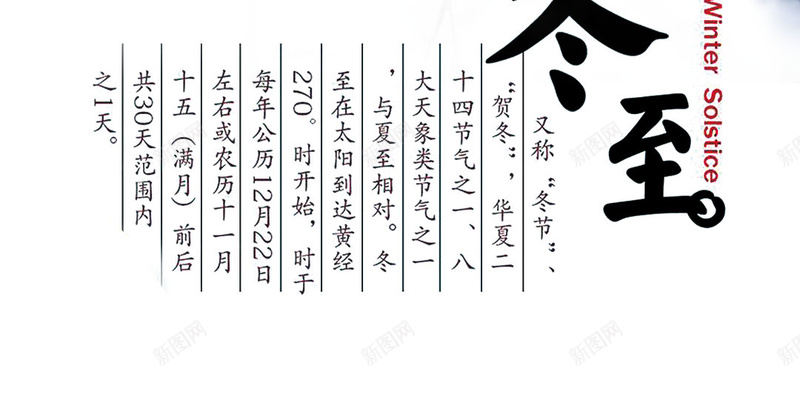 冬至
Winter Solstice
又称“冬节”、
“贺冬”，华夏二
十四节气之一、八
大天象类节气之一
，与夏至相对。冬
至在太阳到达黄经
270。时开始，时于
每年公历12月22日
左右或农历十一月
十五（满月）前后
共30天范围内
之1天。
新图网
新图网
新图网
新图网
新图网
新图网
新图网
新图网